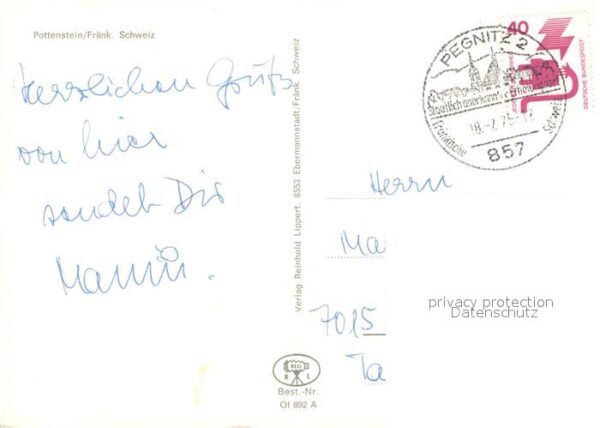 Pottenstein/Fränk. Schweiz
Herzlichen Gruß
von hier
sendet Dir
Mammi.
Verlag Reinhold Lippert, 8553 Ebermannstadt/Fränk. Schweiz
RELI
R L
Best.-Nr.
Of 892 A
40
DEUTSCHE BUNDESPOST
PEGNITZ 2
Staatlich anerkannter Erholungsort
18.-7.75-17
Fränkische Schweiz
857
Herrn
Ma
7015
Ta
privacy protection
Datenschutz